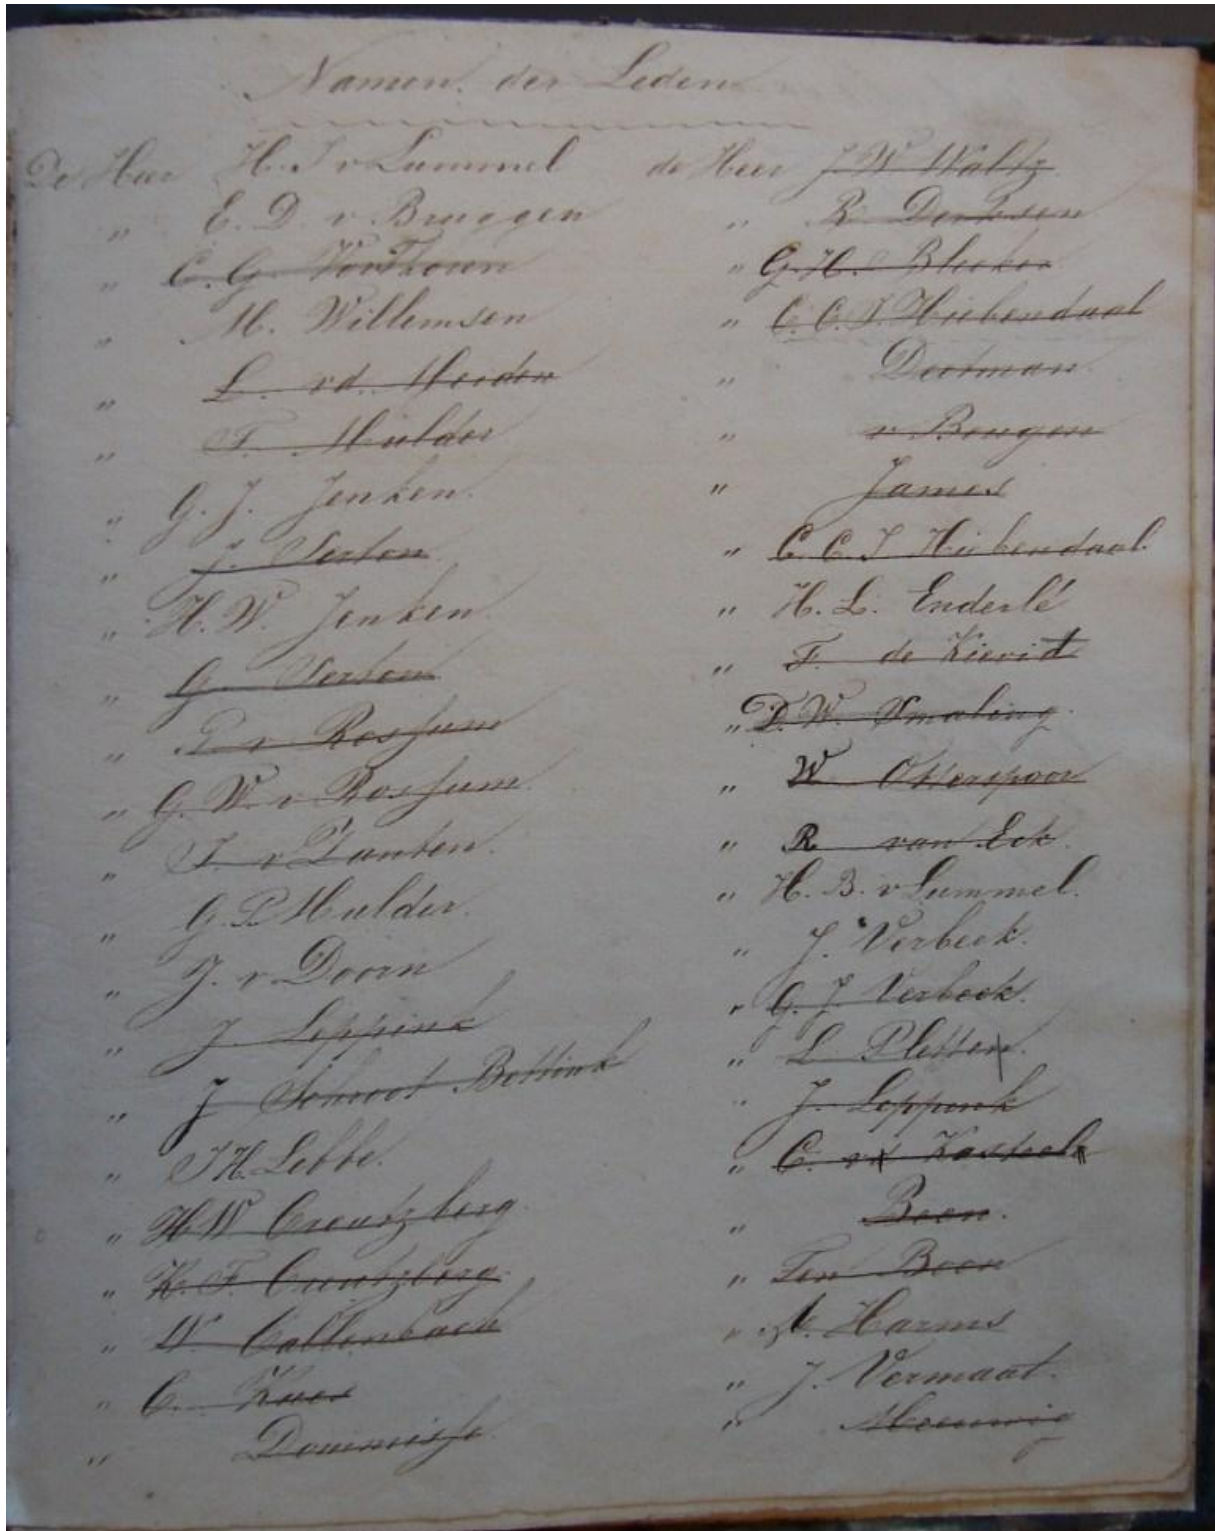 Namen der Leden
De Heer H. J. v Lummel
" E. D. v. Bruggen
" C. G. Voorhoeve
" M. Willemsen
" L. vd. Heiden
" F. Mulder
" G. J. Jenken.
" J. Serton
" H. W. Jenken
" G. Serton
" v Rossum
" G. W. v. Rossum
" v Zanten.
" G. P. Mulder.
" J. v. Doorn
" J. Leppink
" J Schroot Bottink
" Lebbe.
" H W Creutzberg
" K. F. Creutzberg
" W. Callenbach
" C.
" Dommisse
de Heer J. W. Waltz
" R Derksen
" G. H. Bleeker
" C. C. J. Hubendaal
" Deetman
" v Bongen
" James
" C. C. J Hubendaal
" H. L. Enderlé
" F. de Kievid
" D. W. Smaling
" W Otterspoor
" R van Eck
" H. B. v Lummel.
" J. Verbeek.
" G. J. Verbeek.
" L Pletten.
" J. Leppenk
" C. Kasteel
" Boon.
" Ten Boon
" Harms
" J. Vermaat.
" Meeuwig